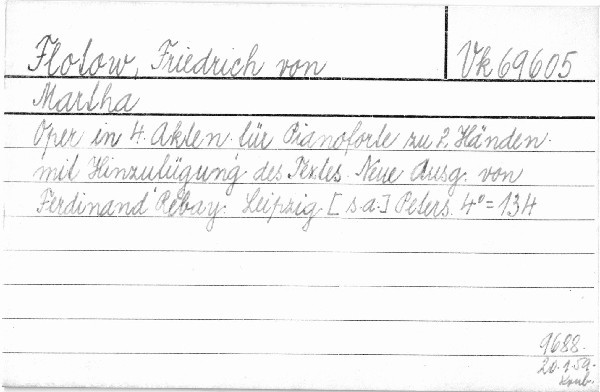 Flotow, Friedrich von
Vk 69605
Martha
Oper in 4. Akten für Pianoforte zu 2 Händen.
mit Hinzufügung des Textes. Neue Ausg. von
Ferdinand Rebay. Leipzig [s.a.] Peters. 4°= 134
9688.
20.1.59.